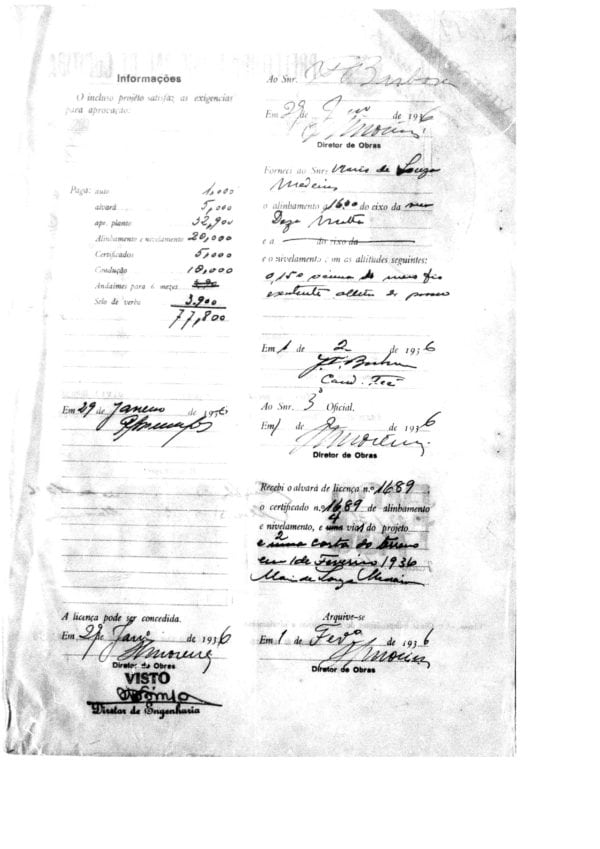 Informações
O incluso projeto satisfaz as exigencias
para aprovação:
Paga: auto 1,000
alvará 5,000
apr. planto 32,900
Alinhamento e nivelamento 20,000
Certificados 5,000
Condução 10,000
Andaimes para 6 mezes
Selo de verba 3,900
77,800
Em 29 de Janeiro de 1936
A licença pode ser concedida.
Em 29 de Janº de 1936
Diretor de Obras
VISTO
Diretor de Engenharia
Ao Snr.
Em 29 de de 1936
Diretor de Obras
Forneci ao Snr: Mario de Souza
o alinhamento a 16.00 do eixo da rua
e a do eixo da
e o nivelamento com as altitudes seguintes:
0,150 acima do meio fio
existente
Em 1 de 2 de 1936
Ao Snr. 3º Oficial.
Em 1 de 2 de 1936
Diretor de Obras
Recebi o alvará de licença n.º 1689
o certificado n.º 1689 de alinhamento
e nivelamento, e 4 vias do projeto
e 2
em 1 de Fevereiro 1936
Arquive-se
Em 1 de Fevº de 1936
Diretor de Obras